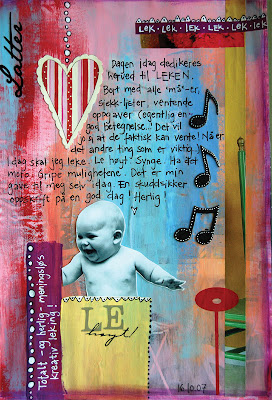 Latter
LEK • LEK • LEK • LEK • LEK • LEK
Dagen idag dedikeres
herved til LEKEN.
Bort med alle "må"-er,
sjekk-lister, ventende
oppgaver (egentlig en
god betegnelse...! Det vil
jo si at de faktisk kan vente! Nå er
det andre ting som er viktig.
I dag skal jeg leke. Le høyt! Synge. Ha det
moro. Gripe mulighetene. Det er min
gave til meg selv idag. En skuddsikker
oppskrift på en god dag! Herlig!
Totalt - og herlig - meningsløs
kreativ leking!
LE
høyt!
16.10.07